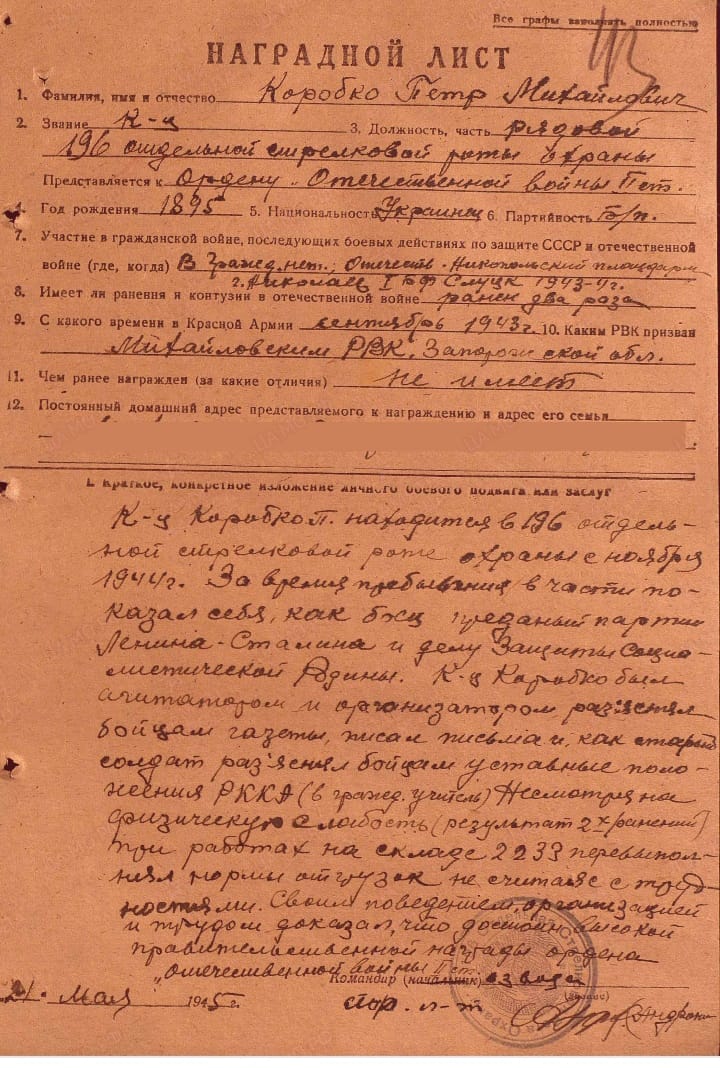 Все графы заполнять полностью
НАГРАДНОЙ ЛИСТ
1. Фамилия, имя и отчество Коробко Петр Михайлович
2. Звание К-ц 3. Должность, часть рядовой
196 отдельной стрелковой роты охраны
Представляется к Ордену „Отечественной войны II ст.
4. Год рождения 1895 5. Национальность Украинец 6. Партийность Б/п.
7. Участие в гражданской войне, последующих боевых действиях по защите СССР и отечественной
войне (где, когда) В гражд. нет; Отечеств - Никопольский плацдарм
г. Николаев I БФ Слуцк 1943-4г.
8. Имеет ли ранения и контузии в отечественной войне ранен два раза
9. С какого времени в Красной Армии сентябрь 1943г. 10. Каким РВК призван
Михайловским РВК, Запорожской обл.
11. Чем ранее награжден (за какие отличия) не имеет
12. Постоянный домашний адрес представляемого к награждению и адрес его семьи
I. Краткое, конкретное изложение личного боевого подвига или заслуг
К-ц Коробко П. находится в 196 отдель-
ной стрелковой роте охраны с ноября
1944г. За время пребывания в части по-
казал себя, как боец преданый партии
Ленина-Сталина и делу Защиты Социа-
листической Родины. К-ц Коробко был
агитатором и организатором, раз'яснял
бойцам газеты, писал письма и, как старый
солдат раз'яснял бойцам уставные поло-
жения РККА (в гражд. учитель) Несмотря на
физическую слабость (результат 2х ранений)
при работах на складе 2233 перевыпол-
нял нормы отгрузок не считаясь с труд-
ностями. Своим поведением, организацией
и трудом доказал, что достоин высокой
правительственной награды ордена
„Отечественной войны II ст.
Командир (начальник) взвода
(звание)
21. Мая 1945г.
стар. л-т